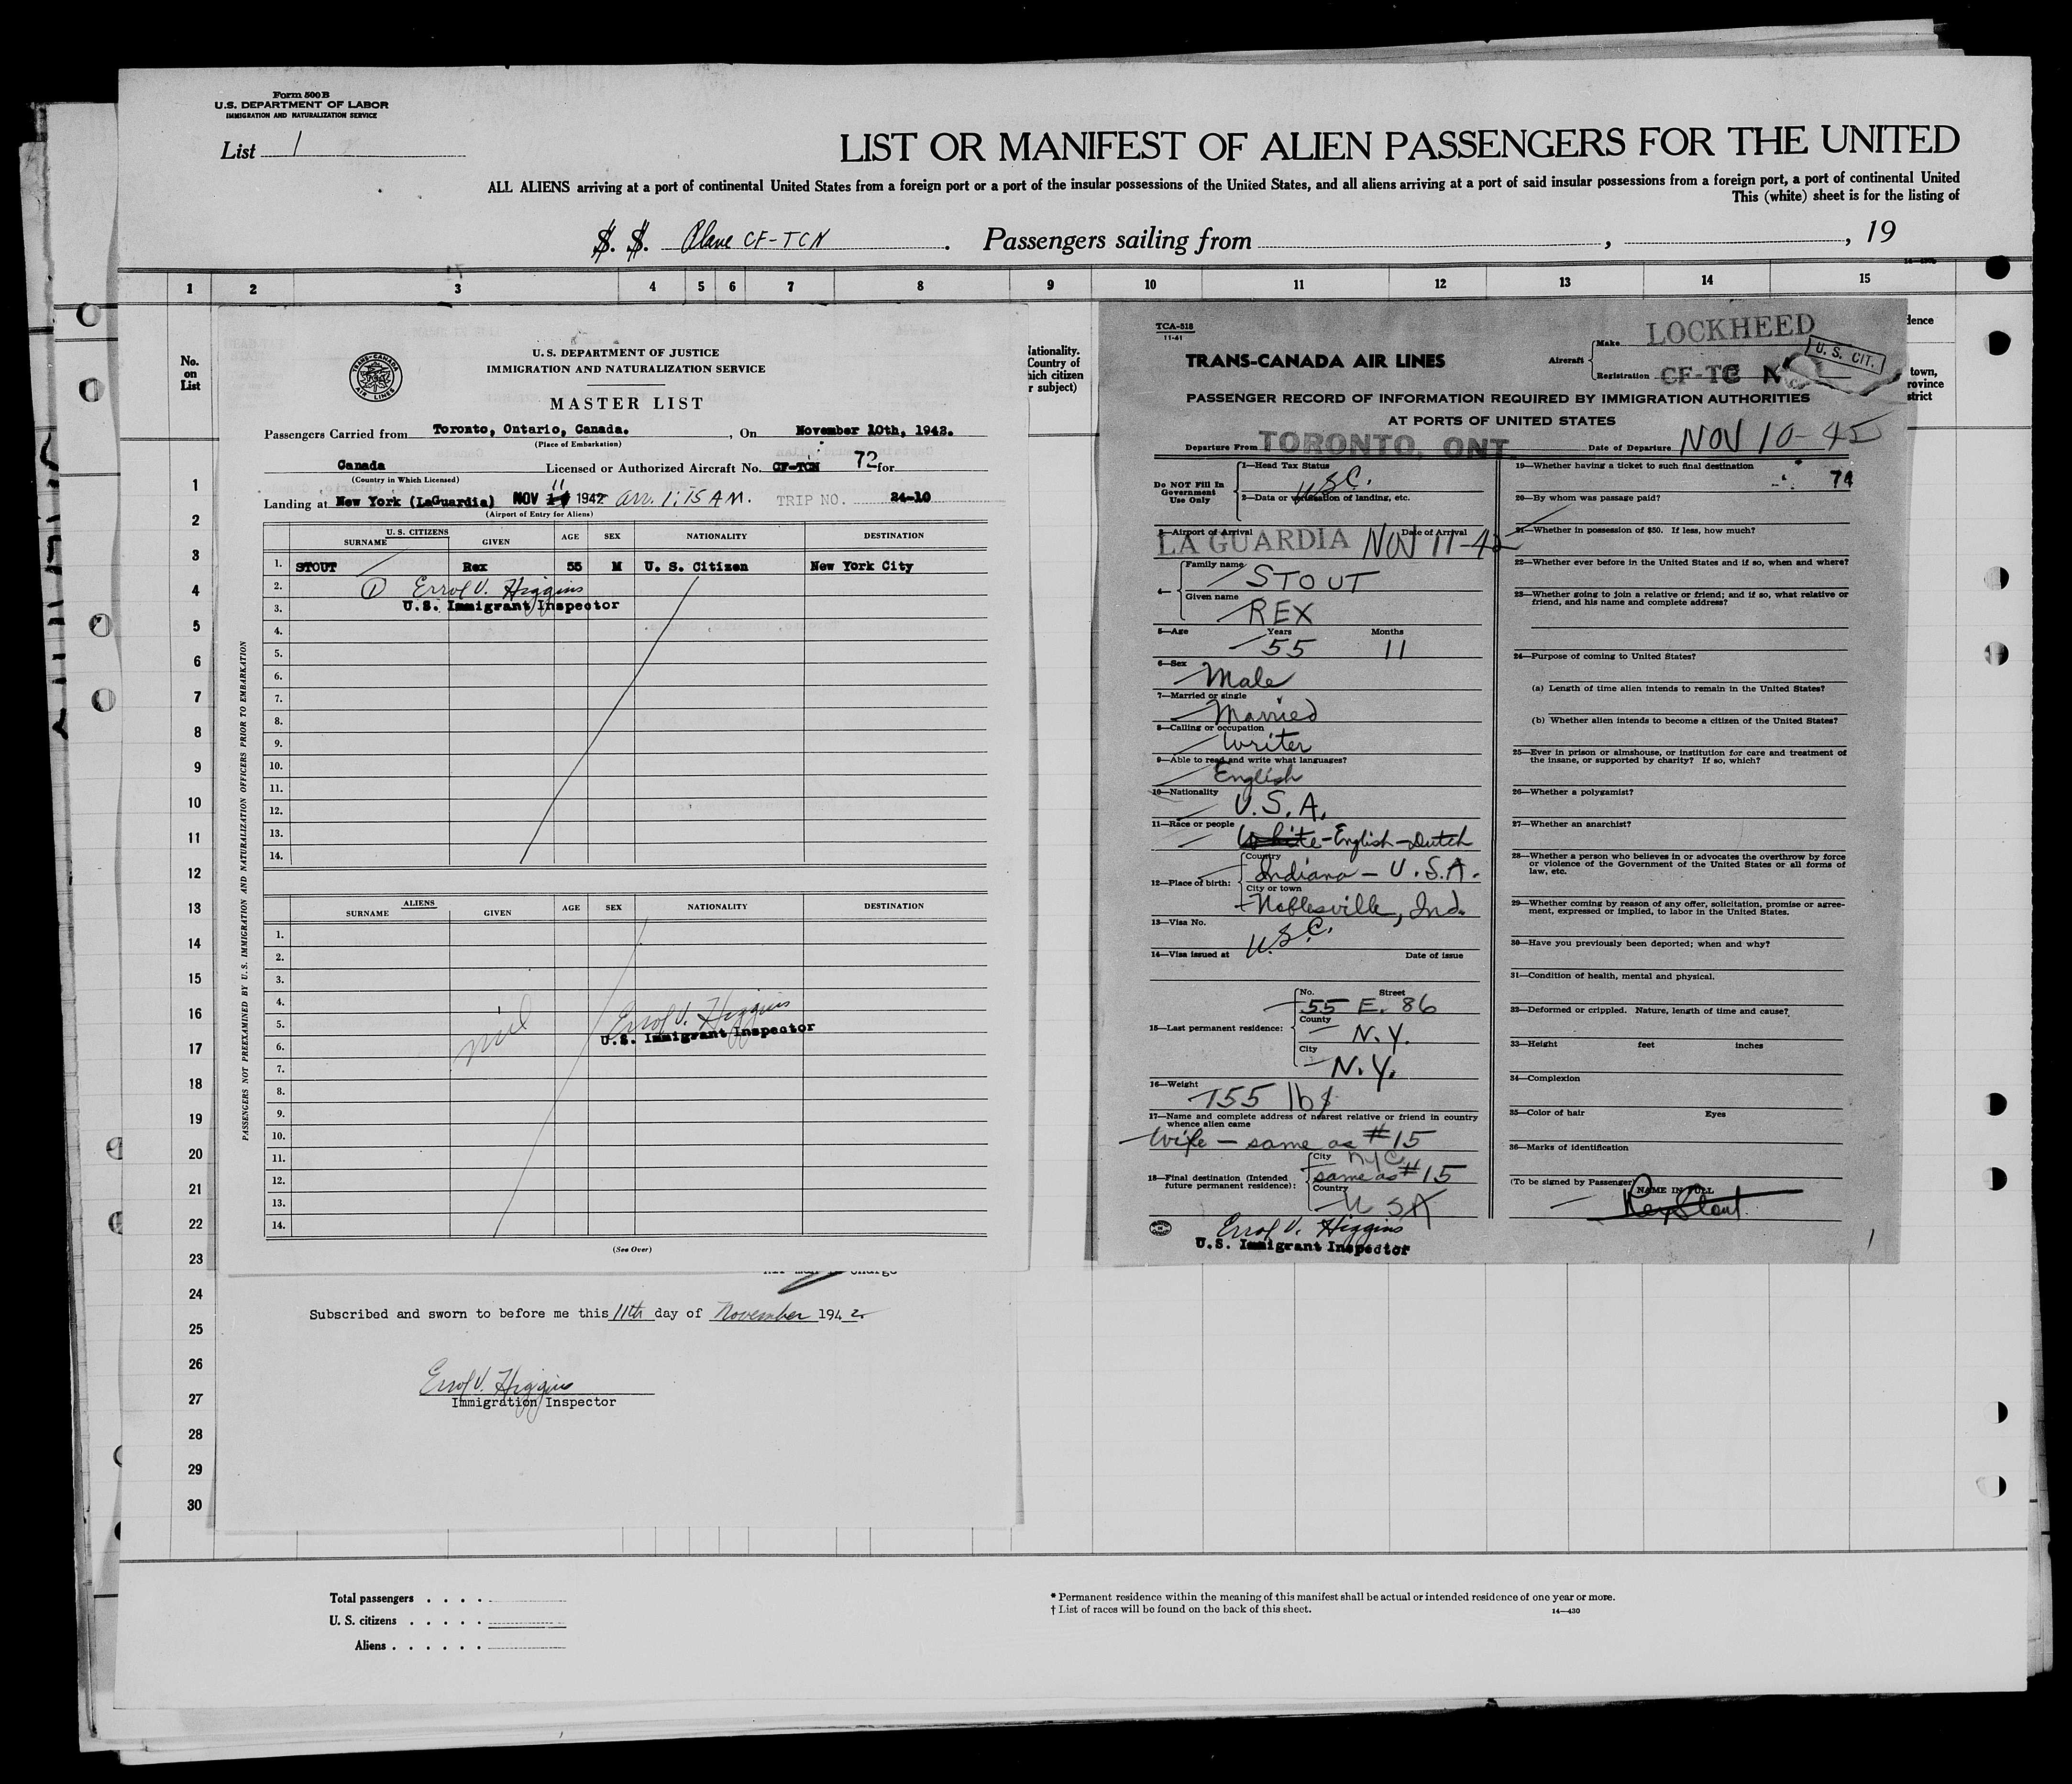 Form 500 B
U.S. DEPARTMENT OF LABOR
IMMIGRATION AND NATURALIZATION SERVICE
List 1
LIST OR MANIFEST OF ALIEN PASSENGERS FOR THE UNITED
ALL ALIENS arriving at a port of continental United States from a foreign port or a port of the insular possessions of the United States, and all aliens arriving at a port of said insular possessions from a foreign port, a port of continental United
This (white) sheet is for the listing of
S. S. Plane CF-TCN . Passengers sailing from , , 19
1 2 3 4 5 6 7 8 9 10 11 12 13 14 15
No.
on
List
1
2
3
4
5
6
7
8
9
10
11
12
13
14
15
16
17
18
19
20
21
22
23
24
25
26
27
28
29
30
TRANS-CANADA
AIR LINES
U. S. DEPARTMENT OF JUSTICE
IMMIGRATION AND NATURALIZATION SERVICE
MASTER LIST
Passengers Carried from Toronto, Ontario, Canada. , On November 10th, 1942.
(Place of Embarkation)
Canada Licensed or Authorized Aircraft No. CF-TCN 72 for
(Country in Which Licensed)
Landing at New York (LaGuardia) NOV 11 1942 arr. 1:15 AM. TRIP NO. 24-10
(Airport of Entry for Aliens)
U. S. CITIZENS
SURNAME GIVEN AGE SEX NATIONALITY DESTINATION
1. STOUT Rex 55 M U. S. Citizen New York City
2. 1 Errol V. Higgins
3. U.S. Immigrant Inspector
4.
5.
6.
7.
8.
9.
10.
11.
12.
13.
14.
PASSENGERS NOT PREEXAMINED BY U.S. IMMIGRATION AND NATURALIZATION OFFICERS PRIOR TO EMBARKATION
ALIENS
SURNAME GIVEN AGE SEX NATIONALITY DESTINATION
1.
2.
3.
4.
5. nil Errol V. Higgins
6. U.S. Immigrant Inspector
7.
8.
9.
10.
11.
12.
13.
14.
(See Over)
Subscribed and sworn to before me this 11th day of November 1942
Errol V. Higgins
Immigration Inspector
Nationality.
Country of
which citizen
or subject)
TCA-518
11-41
TRANS-CANADA AIR LINES
Aircraft Make LOCKHEED
Registration CF-TC N
U. S. CIT.
PASSENGER RECORD OF INFORMATION REQUIRED BY IMMIGRATION AUTHORITIES
AT PORTS OF UNITED STATES
Departure From TORONTO, ONT. Date of Departure NOV 10-42
Do NOT Fill In
Government
Use Only
1—Head Tax Status
U.S.C.
2—Data or verification of landing, etc.
3—Airport of Arrival Date of Arrival
LA GUARDIA NOV 11-42
4—Family name STOUT
Given name REX
5—Age Years 55 Months 11
6—Sex Male
7—Married or single Married
8—Calling or occupation Writer
9—Able to read and write what languages?
English
10—Nationality U.S.A.
11—Race or people White-English-Dutch
12—Place of birth: Country Indiana - U.S.A.
City or town Noblesville, Ind.
13—Visa No. U.S.C.
14—Visa issued at Date of issue
15—Last permanent residence: No. Street 55 E. 86
County N.Y.
City N.Y.
16—Weight 155 lbs
17—Name and complete address of nearest relative or friend in country
whence alien came
Wife - same as #15
18—Final destination (Intended
future permanent residence): City NYC same as #15
Country U S A
Errol V. Higgins
U.S. Immigrant Inspector
19—Whether having a ticket to such final destination
74
20—By whom was passage paid?
21—Whether in possession of $50. If less, how much?
22—Whether ever before in the United States and if so, when and where?
23—Whether going to join a relative or friend; and if so, what relative or
friend, and his name and complete address?
24—Purpose of coming to United States?
(a) Length of time alien intends to remain in the United States?
(b) Whether alien intends to become a citizen of the United States?
25—Ever in prison or almshouse, or institution for care and treatment of
the insane, or supported by charity? If so, which?
26—Whether a polygamist?
27—Whether an anarchist?
28—Whether a person who believes in or advocates the overthrow by force
or violence of the Government of the United States or all forms of
law, etc.
29—Whether coming by reason of any offer, solicitation, promise or agree-
ment, expressed or implied, to labor in the United States.
30—Have you previously been deported; when and why?
31—Condition of health, mental and physical.
32—Deformed or crippled. Nature, length of time and cause?
33—Height feet inches
34—Complexion
35—Color of hair Eyes
36—Marks of identification
(To be signed by Passenger) NAME IN FULL
Rex Stout
1
Total passengers . . . .
U. S. citizens . . . . .
Aliens . . . . . .
* Permanent residence within the meaning of this manifest shall be actual or intended residence of one year or more.
† List of races will be found on the back of this sheet. 14—430